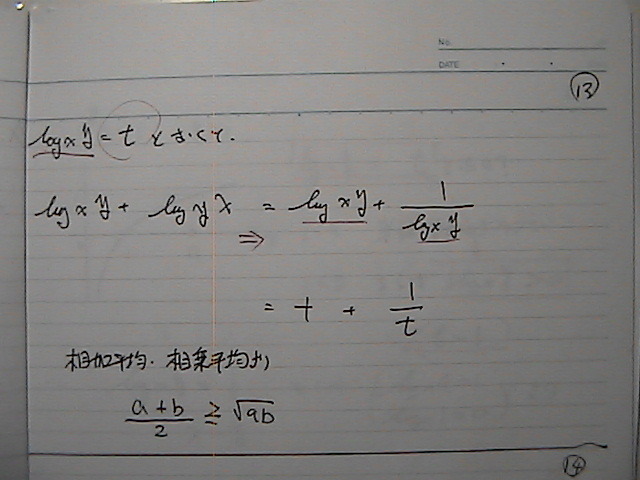 No.
DATE
⑬
log x y = t とおくて.
log x y + log y x = log x y + 1/log x y
⇒
= t + 1/t
相加平均・相乗平均より
a+b/2 ≧ √ab
⑭